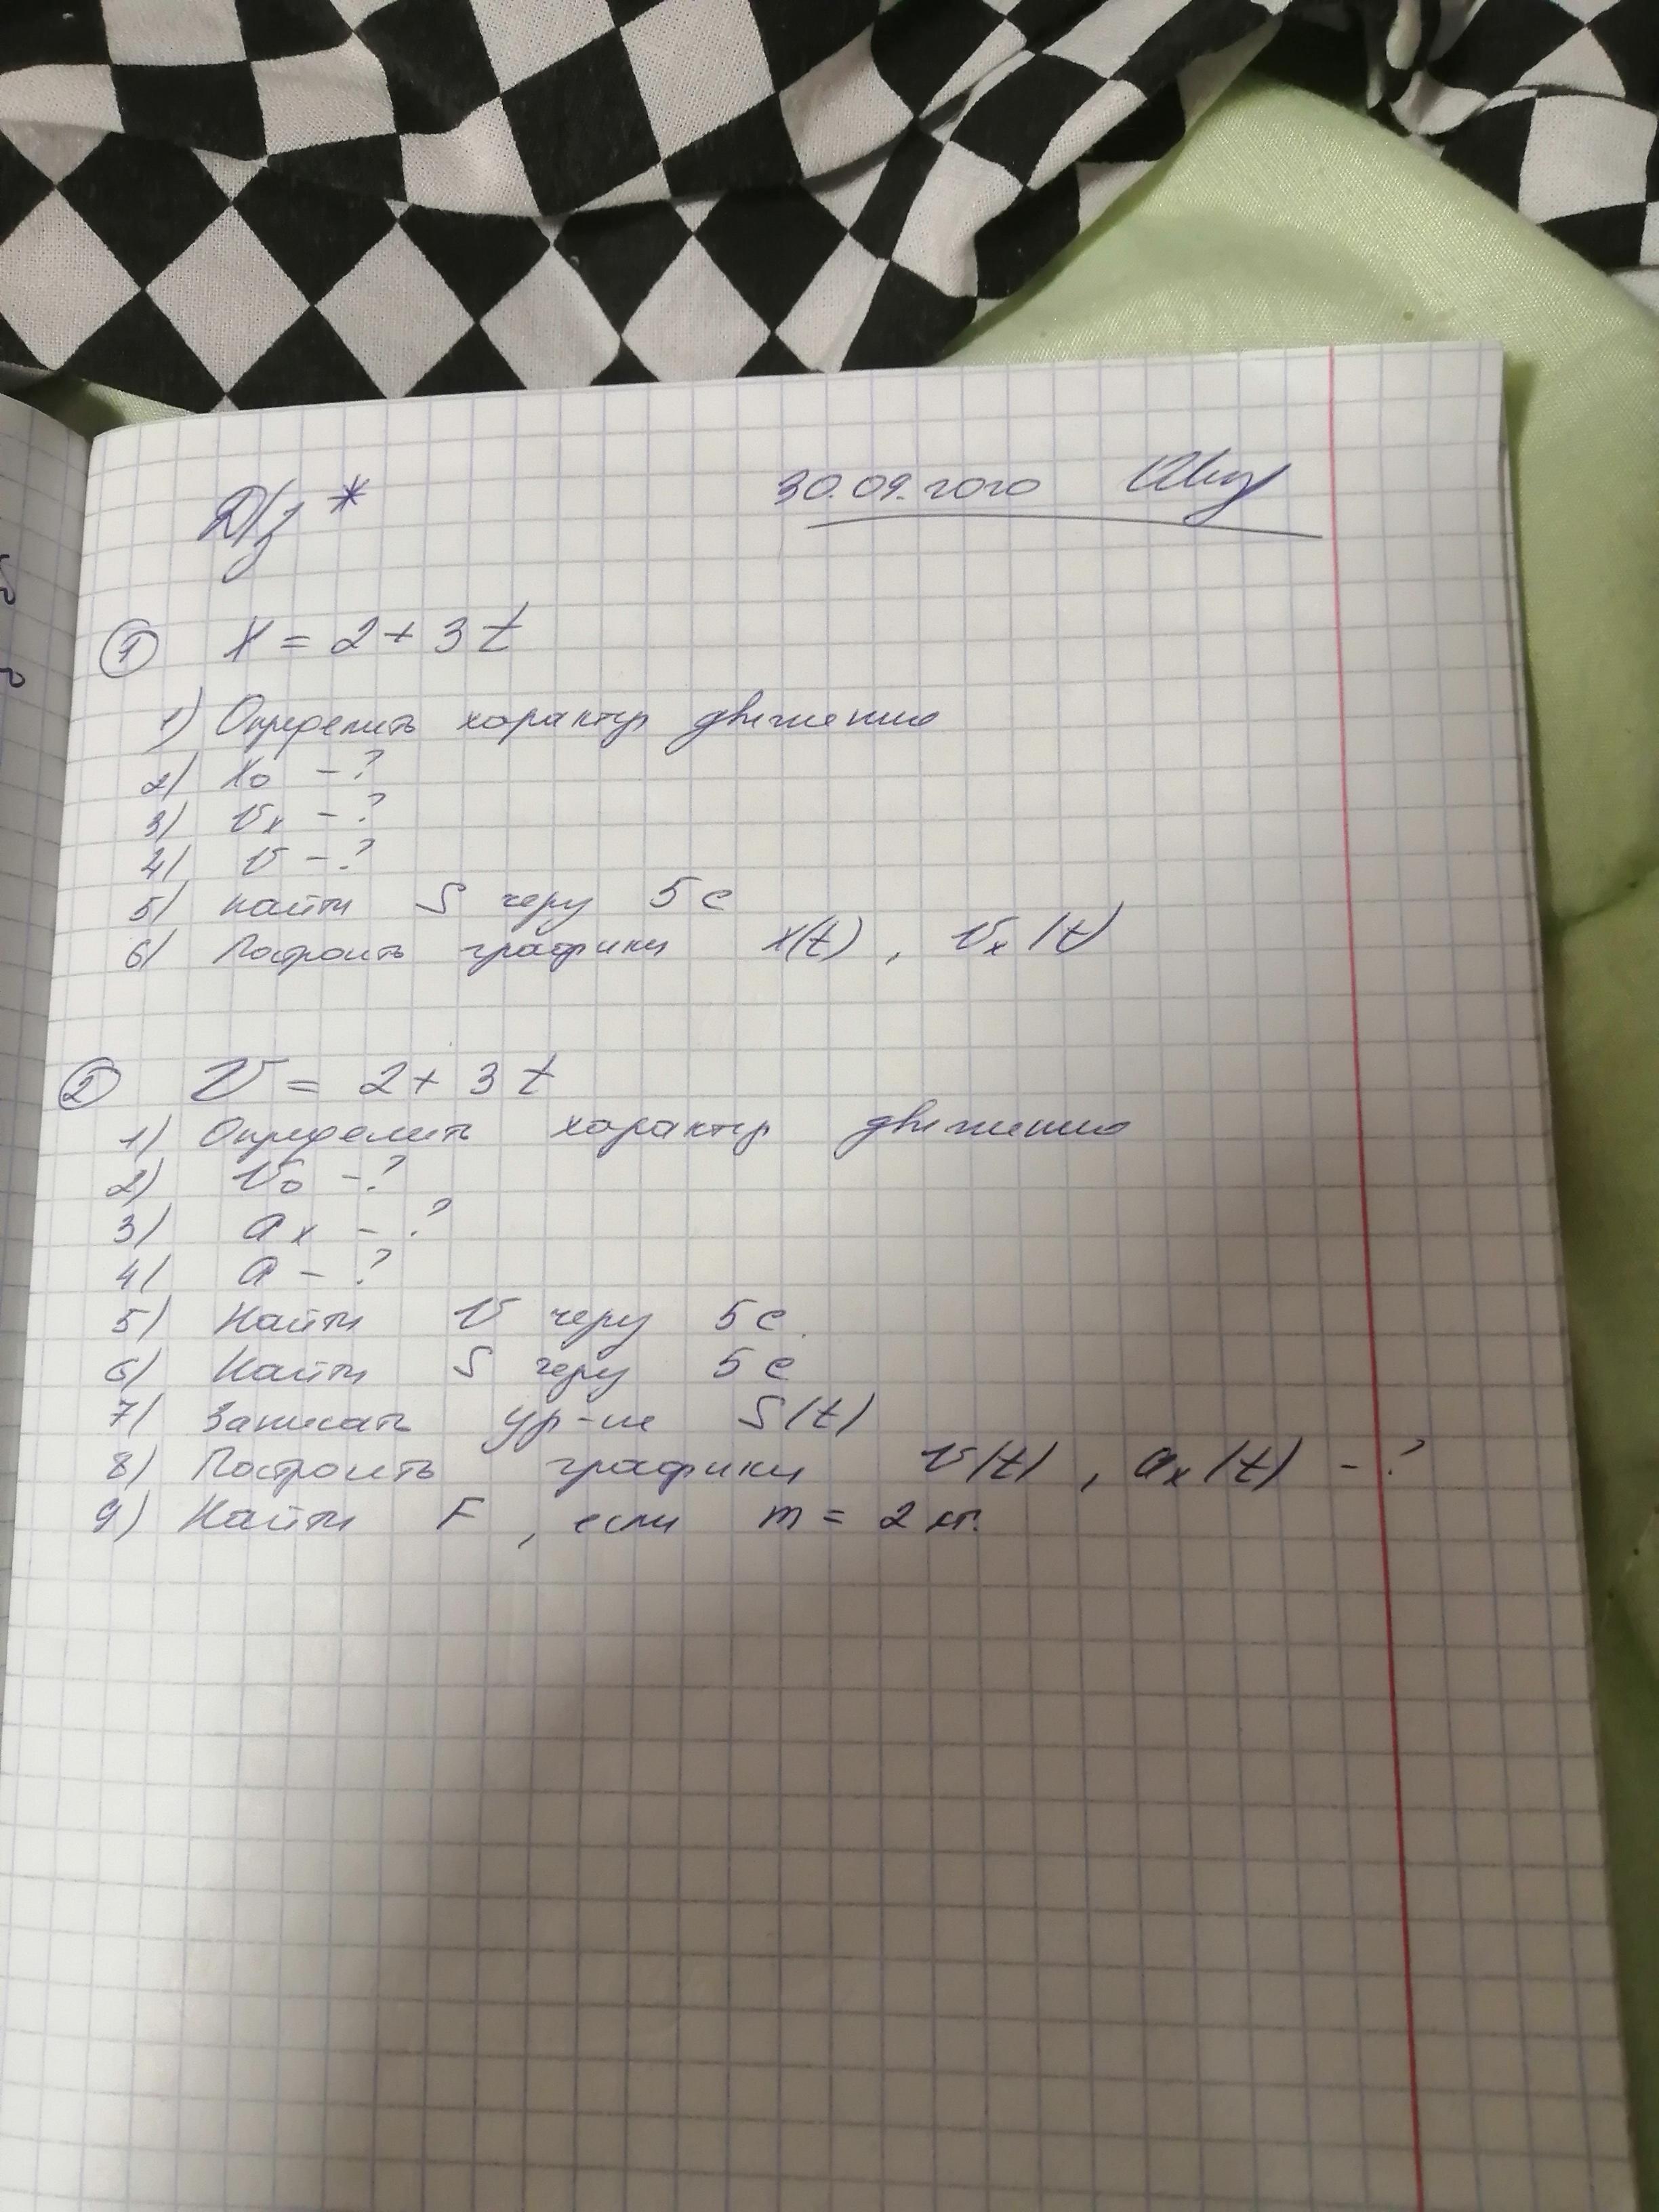 Д/з *
30.09.2020
① x = 2 + 3t
1) Определить характер движения
2) x₀ - ?
3) vₓ - ?
4) v - ?
5) найти S через 5 с
6) Построить графики x(t), vₓ(t)
② v = 2 + 3t
1) Определить характер движения
2) v₀ - ?
3) aₓ - ?
4) a - ?
5) Найти v через 5 с.
6) Найти S через 5 с
7) Записать ур-ие S(t)
8) Построить графики v(t), aₓ(t) - ?
9) Найти F, если m = 2 кг.